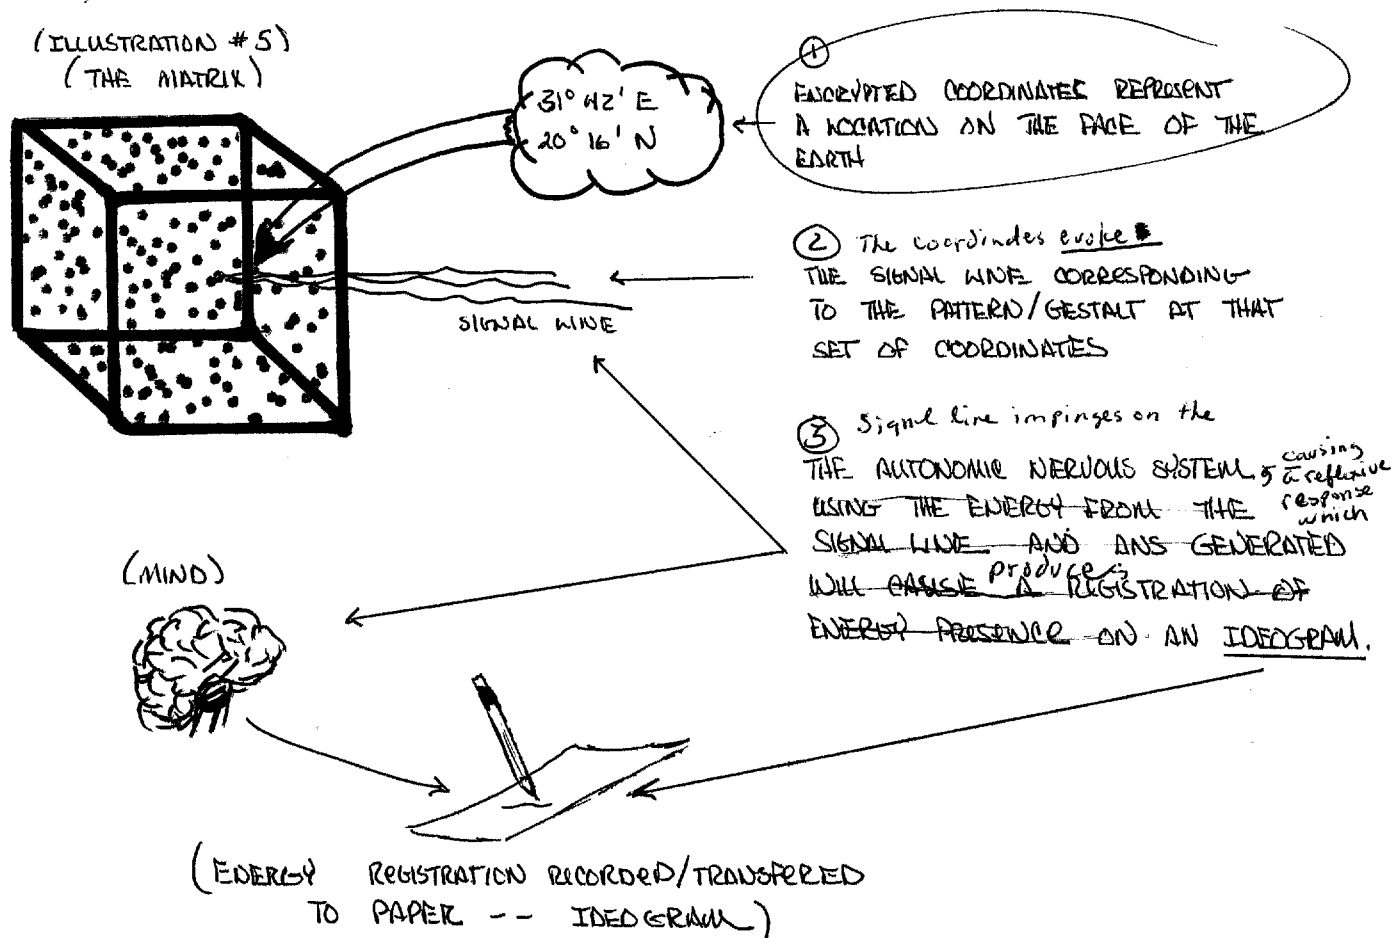 (ILLUSTRATION #5)
(THE MATRIX)
31° 42' E
20° 16' N
1
ENCRYPTED COORDINATES REPRESENT
A LOCATION ON THE FACE OF THE
EARTH
2 The coordinates evoke
THE SIGNAL LINE CORRESPONDING
TO THE PATTERN/GESTALT AT THAT
SET OF COORDINATES
SIGNAL LINE
3 Signal line impinges on the
THE AUTONOMIC NERVOUS SYSTEM, causing
a reflexive
USING THE ENERGY FROM THE response
which
SIGNAL LINE AND ANS GENERATED
produces
WILL CAUSE A REGISTRATION OF
ENERGY PRESENCE ON AN IDEOGRAM.
(MIND)
(ENERGY REGISTRATION RECORDED/TRANSFERED
TO PAPER -- IDEOGRAM)